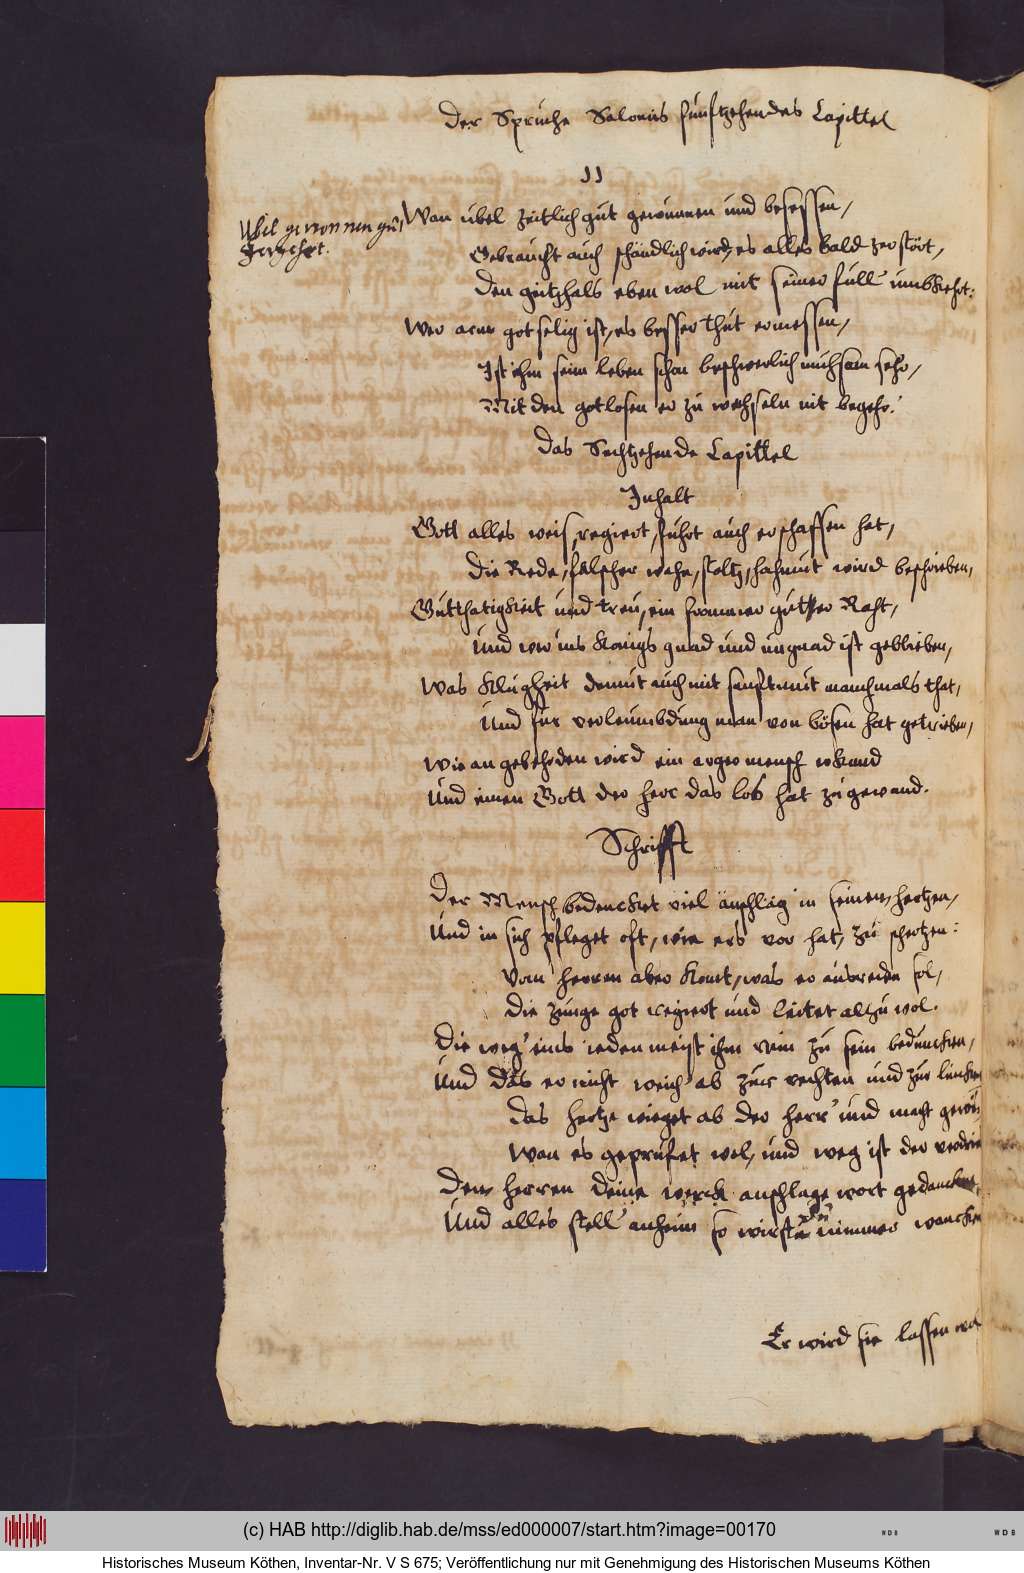 Der Sprüche Salomis funftzehendes Capittel
11
Ubil gewonnen gut
Zerzehrt.
Wan ubel zeitlich gut gewunnen und besessen,
Gebraucht auch schändlich wird, es alles bald zerstört,
Den geitzhals eben wol mit seiner füll umbkehrt:
Wer arm gotselig ist, es besser thut ermessen,
Ist ihm sein leben schon beschwerlich muhsam sehr,
Mit den gotlosen er zu wechseln nit begehr.
Das Sechtzehende Capittel
Inhalt
Gott alles weis, regiert, führt auch erschaffen hat,
Die Rede, falscher wahn, stoltz, hahmut wird beschrieben,
Gutthatigkeit und treu, ein frommer guter Raht,
Und wer ins Konigs gnad und ungnad ist geblieben,
Was klugheit demut auch mit sanftmut manchmals that,
Und für verleumbdung man von bösen hat getrieben,
Wie an gebehrden wird ein arger mensch erkand
Und einen Gott der herr das los hat zugewand.
Schrifft
Der Mensch bedencket viel anschläg in seinem hertzen,
Und in sich pfleget oft, wie ers vor hat, zu schertzen:
Vom herren aber komt, was er ausreden sol,
Die zunge got regiert und leitet allzu wol.
Die weg' eins ieden meist ihm rein zu sein beduncken,
Und das er nicht weich' ab zur rechten und zur lincken
Das hertze wieget ab der herr' und macht
Wan es geprüfet wol, und weg ist der
Dem herren deine werck anschlage wort gedancken,
Und alles stell' anheim so wirstu nimmer wancken
Er wird sie lassen wol
(c) HAB http://diglib.hab.de/mss/ed000007/start.htm?image=00170
WDB
WDB
Historisches Museum Köthen, Inventar-Nr. V S 675; Veröffentlichung nur mit Genehmigung des Historischen Museums Köthen